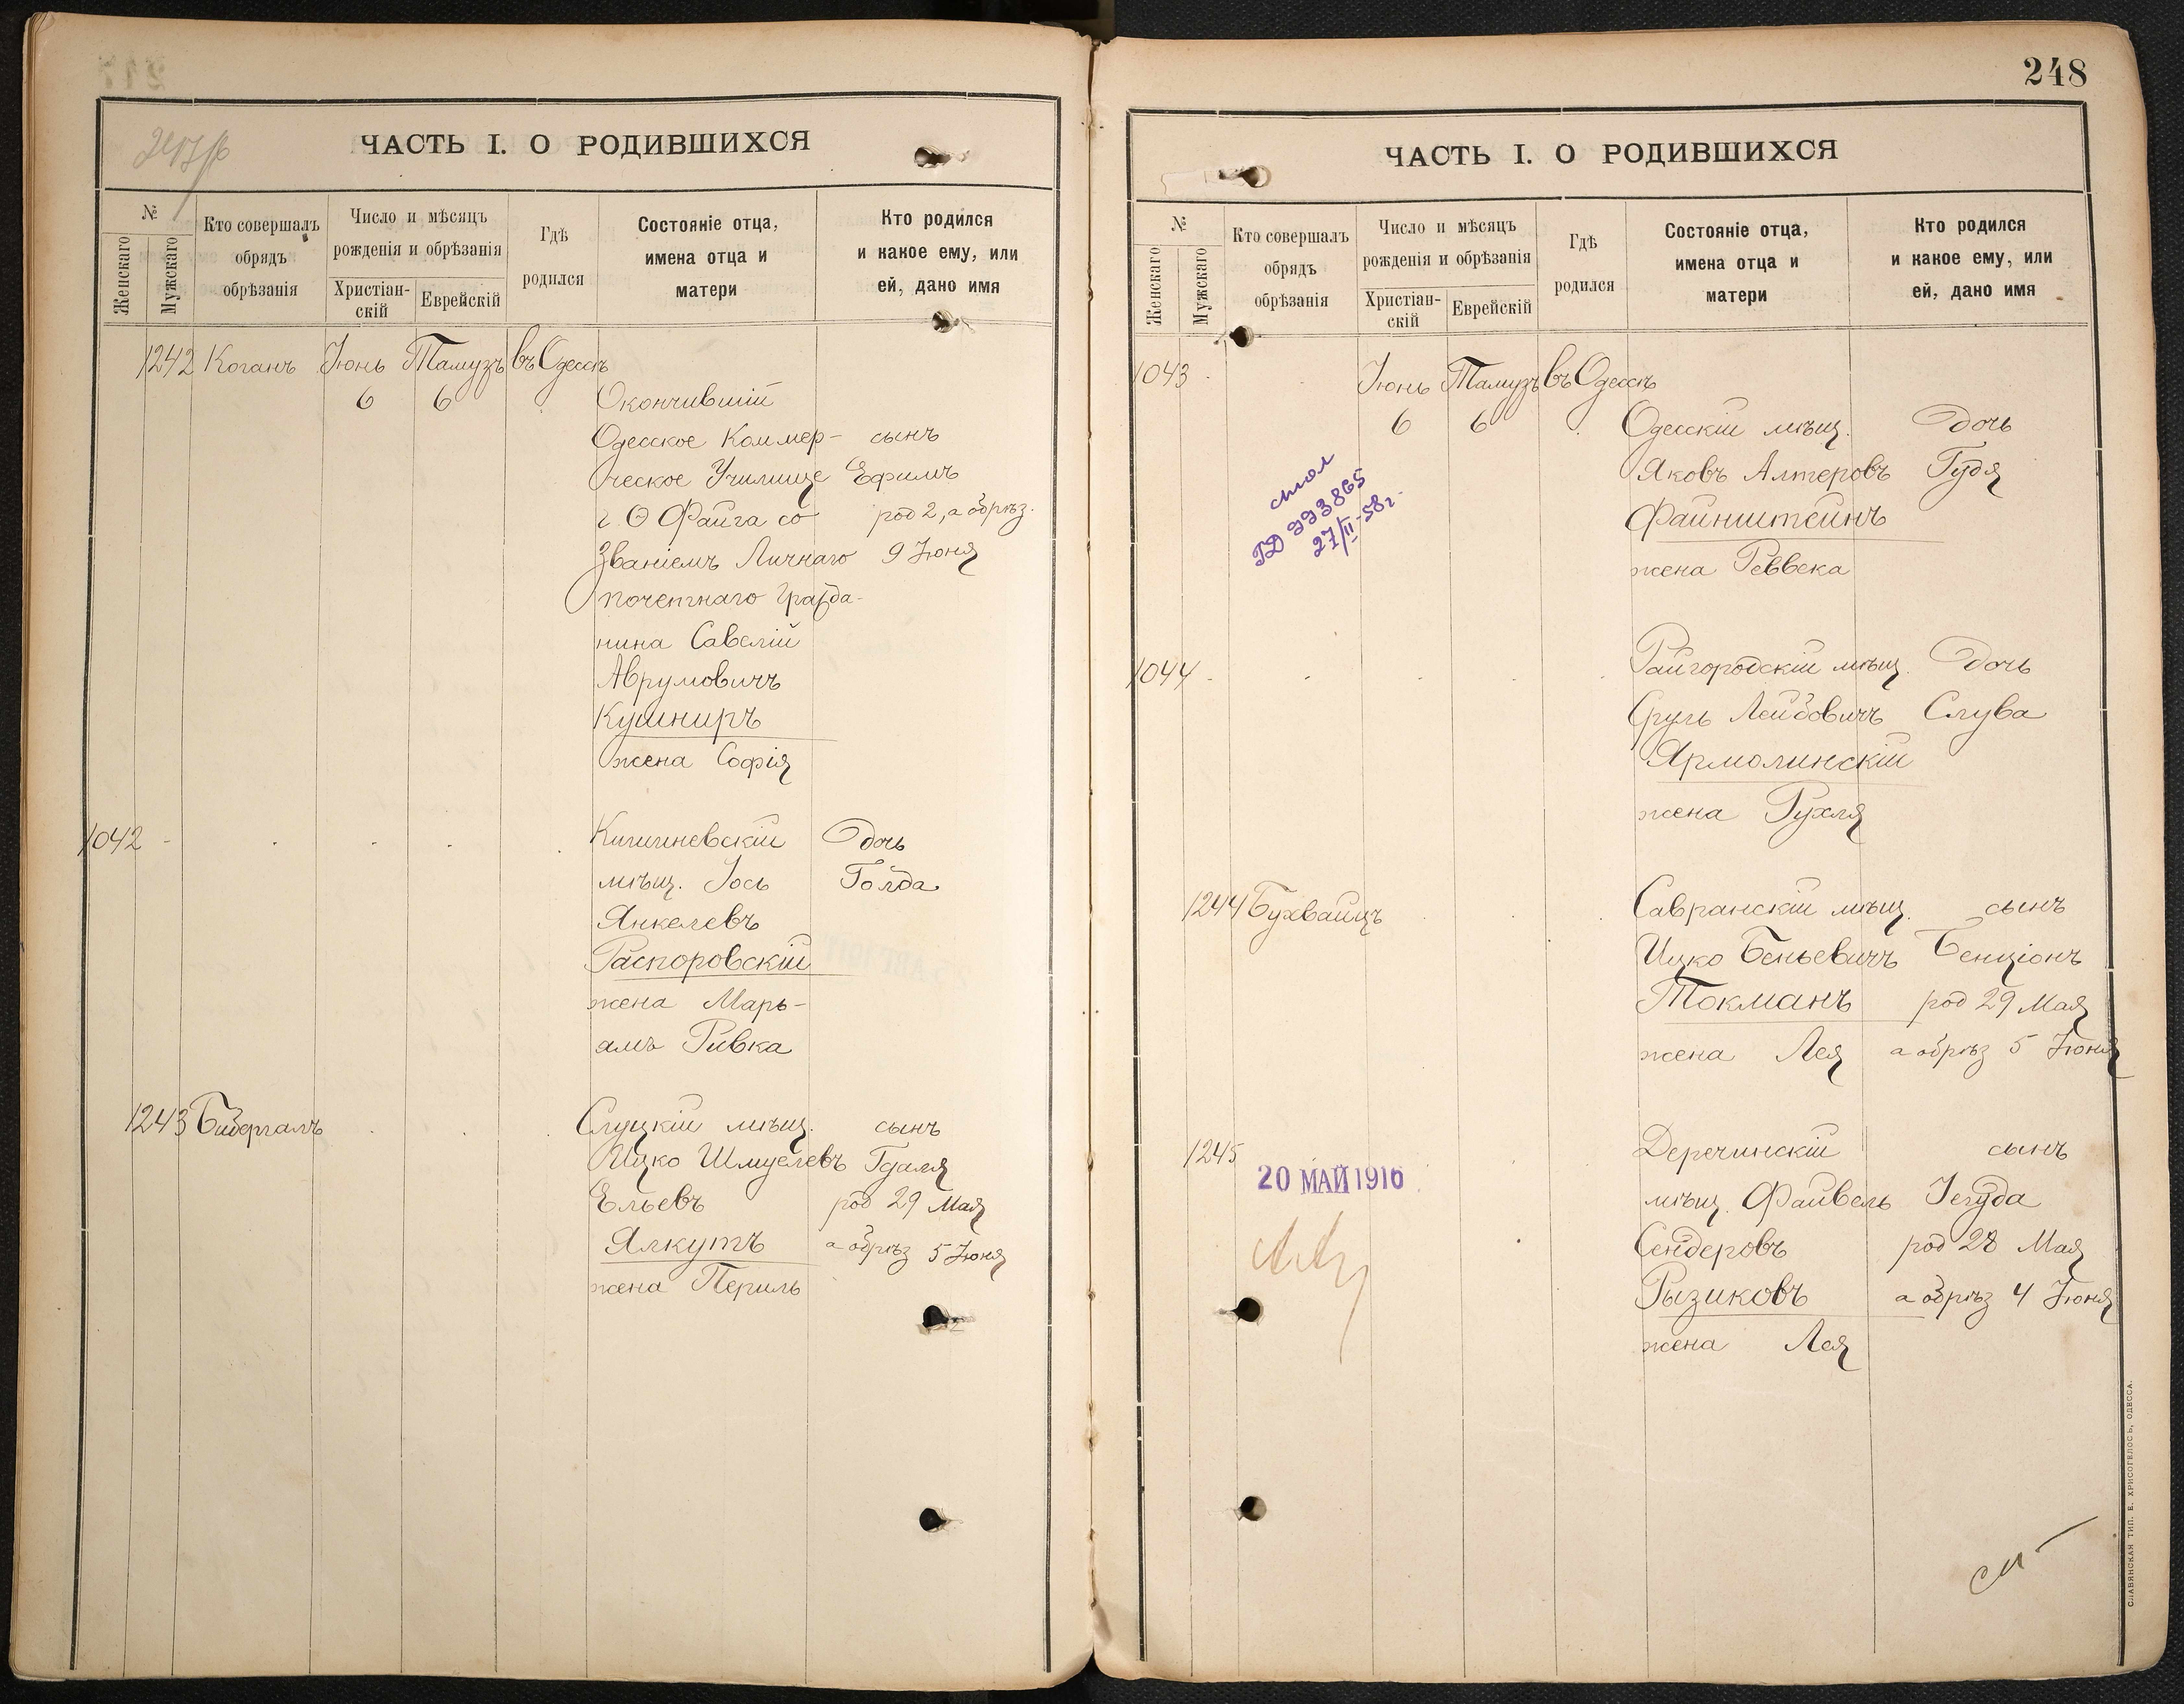 ЧАСТЬ I. О РОДИВШИХСЯ
№
Женскаго
Мужскаго
Кто совершалъ
обрядъ
обрѣзанія
Число и мѣсяцъ
рожденія и обрѣзанія
Христіан-
скій
Еврейскій
Гдѣ
родился
Состояніе отца,
имена отца и
матери
Кто родился
и какое ему, или
ей, дано имя
1242 Коганъ Іюнь Тамузъ въ Одессѣ
6 6 Окончившій
Одесское Коммер- сынъ
ческое Училище Ефимъ
г. Ѳ Файга со род 2, а обрѣз.
Званіемъ Личнаго 9 Іюня
почетнаго Гражда-
нина Савелій
Аврумовичъ
Кушниръ
жена Софія
1042 Кишиневскій Дочь
мѣщ. Іось Голда
Янкелевъ
Распоровскій
жена Марь-
ямъ Ривка
1243 Бибергалъ Слуцкій мѣщ. сынъ
Ицко Шмуелевъ Гдаля
Ельевъ род 29 Мая
Ялкутъ а обрѣз 5 Іюня
жена Периль
248
ЧАСТЬ I. О РОДИВШИХСЯ
№
Женскаго
Мужскаго
Кто совершалъ
обрядъ
обрѣзанія
Число и мѣсяцъ
рожденія и обрѣзанія
Христіан-
скій
Еврейскій
Гдѣ
родился
Состояніе отца,
имена отца и
матери
Кто родился
и какое ему, или
ей, дано имя
1043 Іюнь Тамузъ въ Одессѣ
6 6 Одесскій мѣщ. Дочь
Яковъ Алтеровъ Гудя
Файнштейнъ
жена Реввека
ГД 993865
27/II-58г.
1044 Райгородскій мѣщ. Дочь
Сруль Лейбовичъ Слува
Ярмолинскій
жена Рухля
1244 Бухвайцъ Савранскій мѣщ. сынъ
Ицко Беньевичъ Бенціонъ
Токманъ род 29 Мая
жена Лея а обрѣз 5 Іюня
1245 Деречинскій сынъ
20 МАЙ 1910
мѣщ. Файвель Іегуда
Сендеровъ род 28 Мая
Рызиковъ а обрѣз 4 Іюня
жена Лея
СЛАВЯНСКАЯ ТИП. Е. ХРИСОГЕЛОСЪ, ОДЕССА.